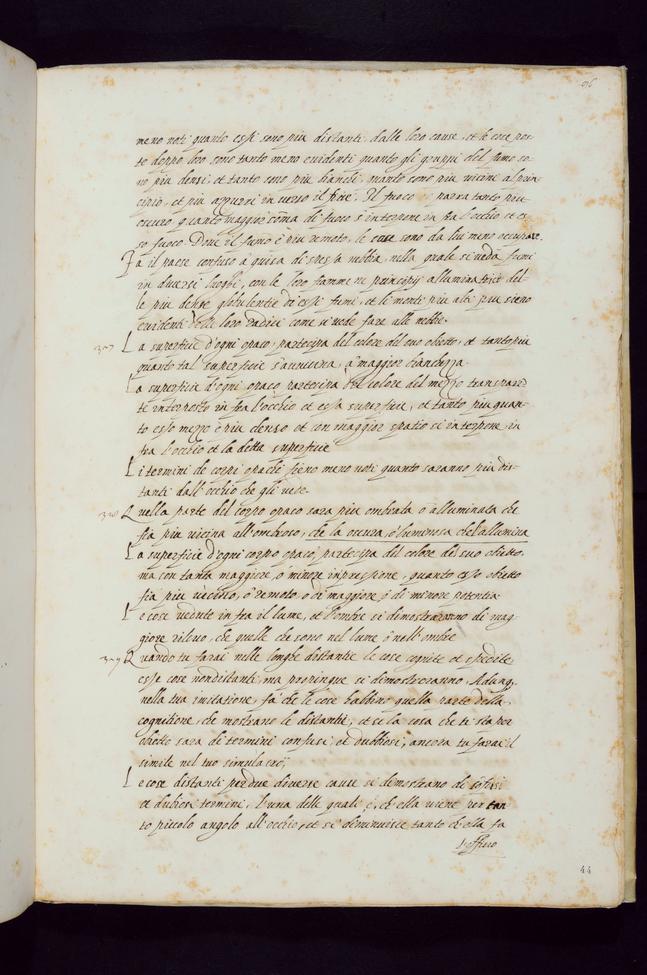 96
meno noti quanto essi sono piu distanti dalle loro cause, et le cose pos-
te doppo loro sono tanto meno euidenti quanto gli gruppi del fumo so-
no piu densi, et tanto sono piu bianchi quanto sono piu uicine al prin
cipio, et piu azzurri in uerso il fine. Il fuoco parra tanto piu
oscuro quanto maggior soma di fumo s'interpone in fra l'occhio et es-
so fuoco. Doue il fumo è piu remoto, le cose sono da lui meno occupate.
Fa il paese confuso à guisa di spessa nebbia, nella quale si ueda fumi
in diuersi luoghi, con le loro fiamme ne principij alluminatrici del-
le piu dense globulentie di essi fumi, et li monti piu alti piu sieno
euidenti delle loro radici come si uede fare alle nebbie.
327 La superficie d'ogni opaco, partecipa del colore del suo obietto, et tanto piu
quanto tal superficie s'auuicina, à maggior bianchezza.
La superficie d'ogni opaco partecipa del colore del mezzo transparen
te interposto in fra l'occhio et essa superficie, et tanto piu quan-
to esso mezzo è piu denso et con maggior spatio si interpone in
fra l'occhio et la detta superficie
Li termini de corpi opachi fieno meno noti quanto saranno piu dis-
tanti dall'occhio che gli uede.
328 Quella parte del corpo opaco sara piu ombrata o alluminata che
fia piu uicina all'ombroso, che la oscura, ò luminosa che l'allumina
La superficie d'ogni corpo opaco, partecipa del colore del suo obietto.
ma con tanta maggiore, ò minore impressione, quanto esso obietto
fia piu uicino, ò remoto, o di maggiore, o di minore potentia
Le cose uedute in fra il lume, et l'ombre si dimostraranno di mag-
giore rilieuo, che quelle che sono nel lume ò nell'ombre
329 Quando tu farai nelle longhe distantie le cose cognite et spedite
esse cose non distanti, ma propinque si dimostreranno. Adunq.
nella tua imitatione, fa' che le cose habbino quella parte della
cognitione, che mostrano le distantie, et se la cosa che ti sta per
obietto sara di termini confusi, et dubbiosi, ancora tu farai il
simile nel tuo simulacro;
Le cose distanti per due diuerse cause si dimostrano di confusi
et dubiosi termini, l'una delle quali è, ch'ella uiene per tan
to piccolo angolo all'occhio, et si diminuisce tanto ch'ella fa
l'offitio
44